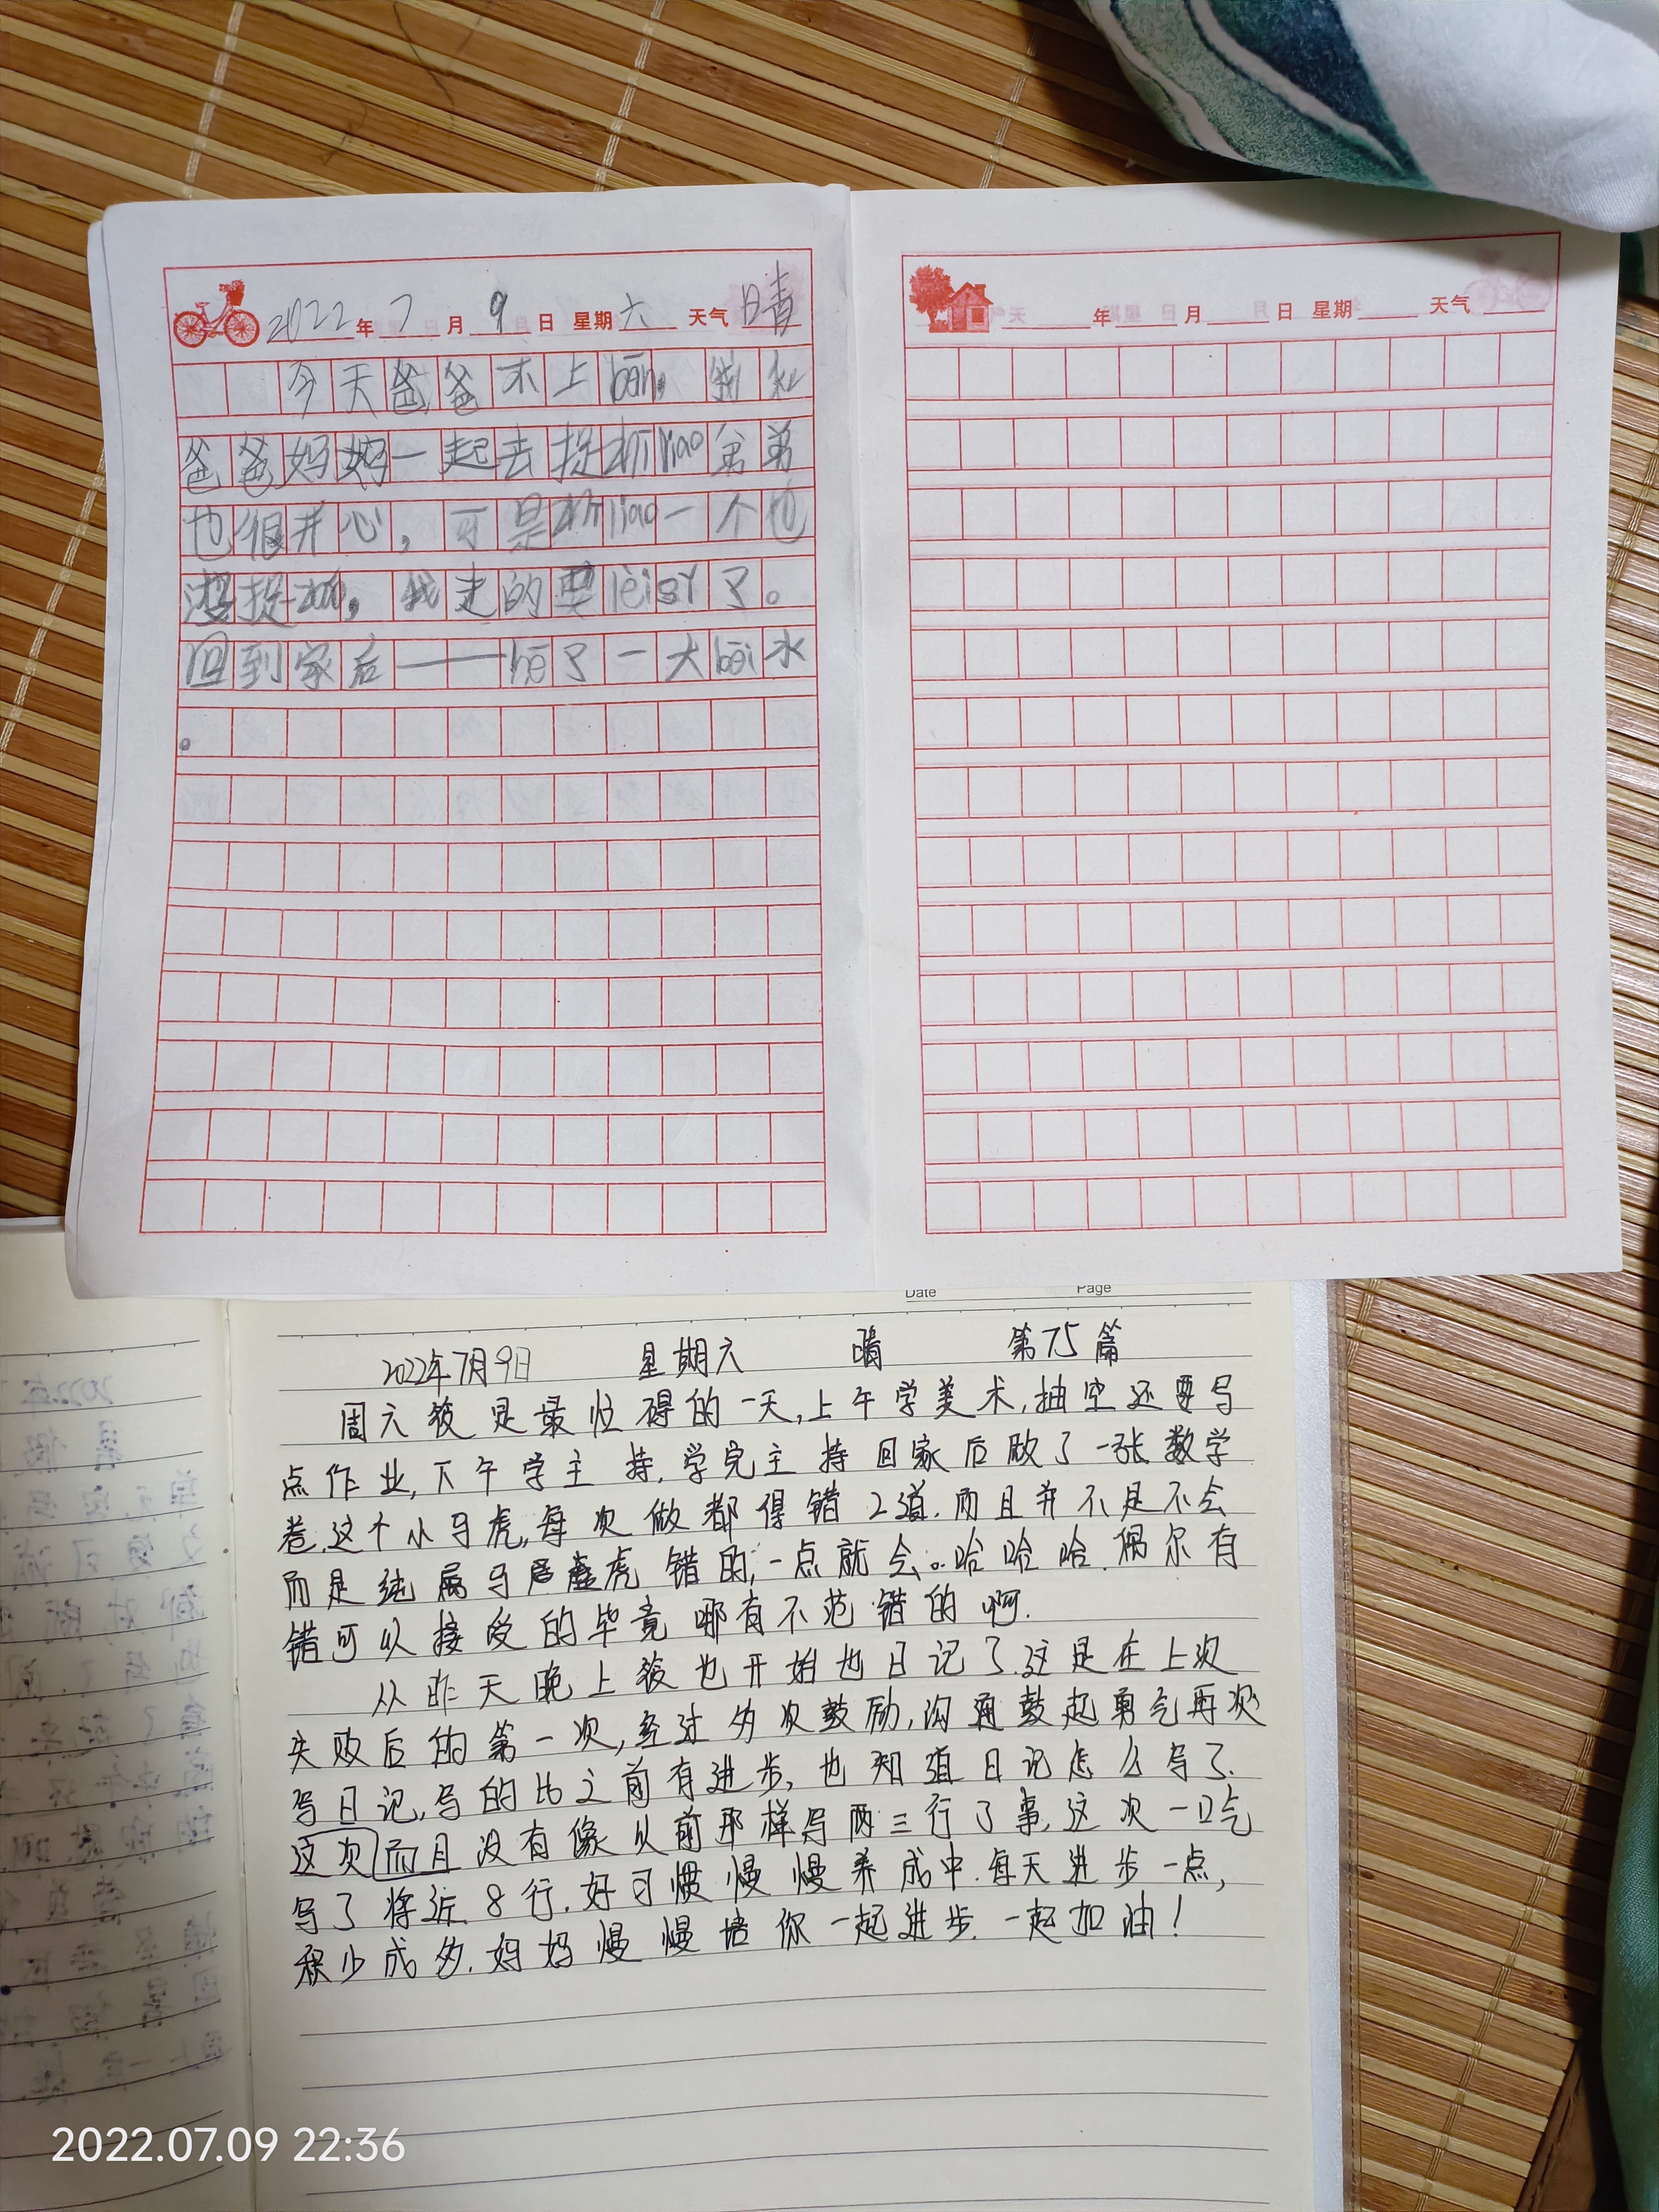 2022年7月9日 星期六 天气晴
今天爸爸不上bān,我和
爸爸妈妈一起去捉 liao弟弟
也很开心,可是 liao一个也
没捉 ,我走的要lèi sǐ了。
回到家后——hē了一大bēi水
。
年 月 日 星期 天气
Date Page
2022年7月9日 星期六 晴 第75篇
周六 是最忙碌的一天,上午学美术,抽空还要写
点作业,下午学主持.学完主持回家后做了一张数学
卷.这个小马虎,每次做都得错2道.而且并不是不会
而是纯属马 虎错的,一点就会。哈哈哈.偶尔有
错可以接受的毕竟哪有不范错的啊.
从昨天晚上 也开始也日记了.这是在上次
失败后的第一次,经过多次鼓励,沟通鼓起勇气再次
写日记,写的比之前有进步,也知道日记怎么写了.
这次而且没有像以前那样写两三行了事,这次一口气
写了将近8行.好习惯慢慢养成中.每天进步一点,
积少成多.妈妈慢慢培你一起进步.一起加油!
2022.07.09 22:36